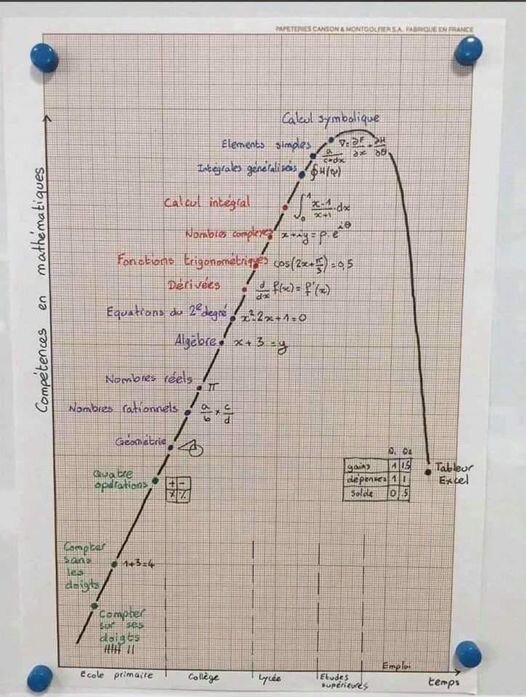 PAPETERIES CANSON & MONTGOLFIER S.A. FABRIQUÉ EN FRANCE
Compétences en mathématiques
Calcul symbolique
∇ = ∂F/∂x + ∂H/∂θ
Elements simples
a/c+dx
Intégrales généralisées
Calcul intégral
∫₀¹ x-1/x+1 · dx
Nombres complexes
x+iy = ρ.e^iθ
Fonctions trigonométriques
cos(2x+π/3) = 0,5
Dérivées
d/dx f(x) = f'(x)
Equations du 2e degré
x²-2x+1=0
Algèbre
x+3=y
Nombres réels
π
Nombres rationnels
a/b × c/d
Géométrie
Quatre opérations
+ -
× %
gains 1 1.5
dépenses 1 1
Solde 0 .5
Tableur
Excel
Compter
sans
les
doigts
1+3=4
Compter
sur ses
doigts
école primaire
Collège
Lycée
Etudes
supérieures
Emploi
temps